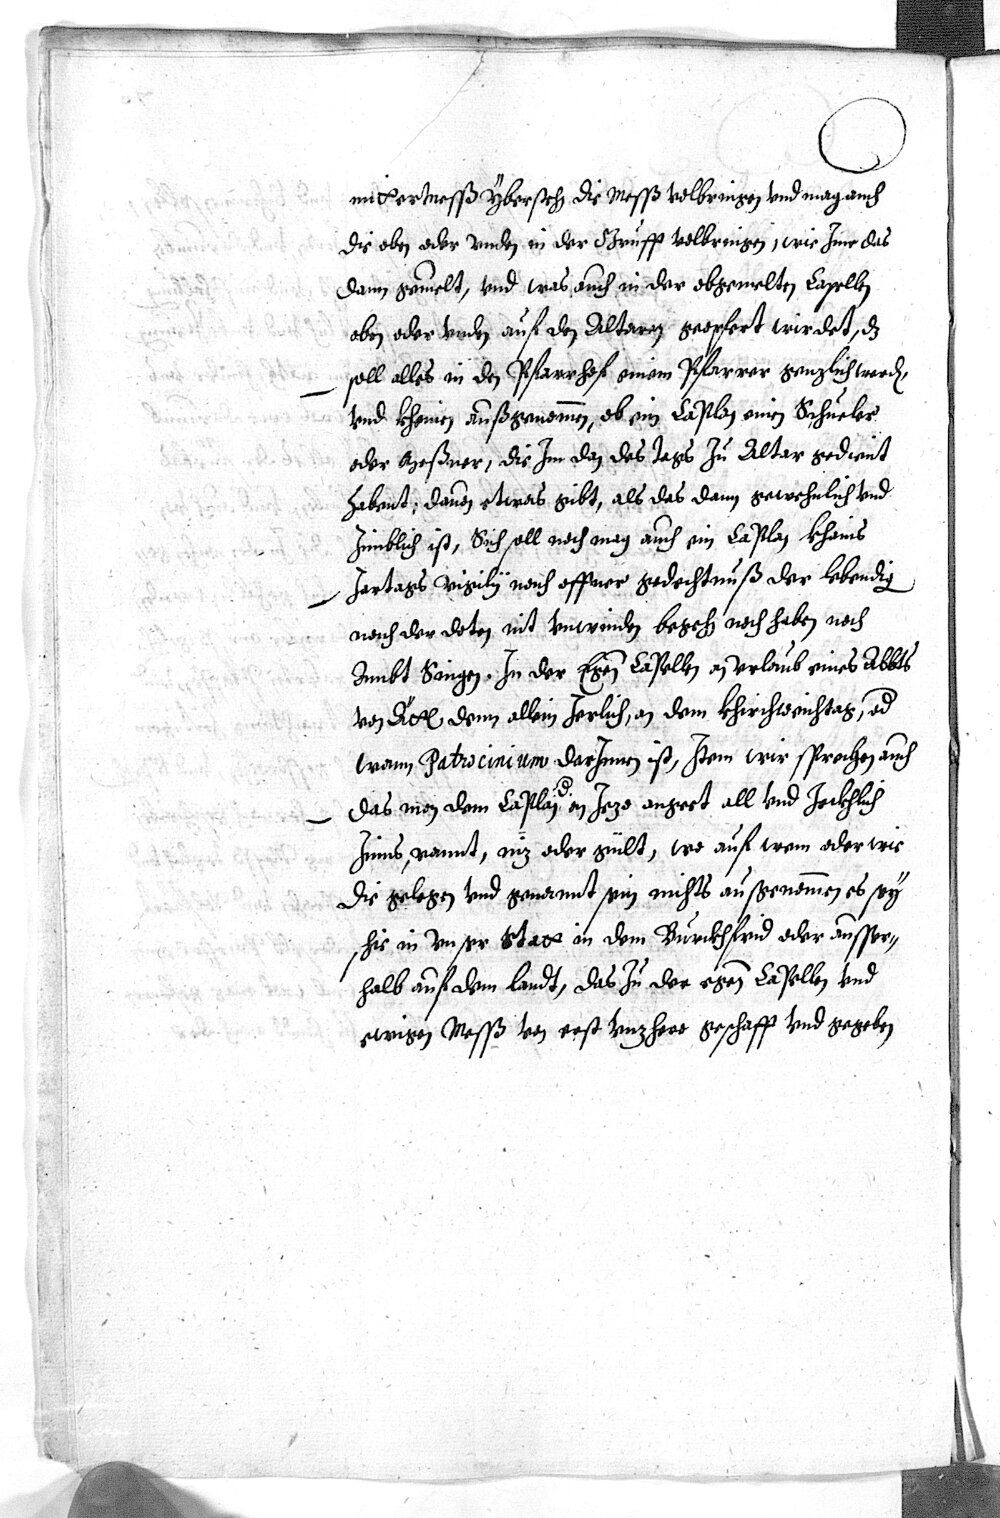 mitter Messß Ybersech die Messß volbringen vnd mag auch
die oben oder vnden in der Grufft volbringen, wie Jme das
dann gemelt, vnd was auch in der obgemelten Capellen
oben oder vnden auf den Altarn geopfert wirdet, dz
soll alles in den Pfarrhof einem Pfarrer genzlich werd,
vnd kheinen außgenomen, ob ein Caplan einen Schueler
oder Meßner, die Jm dan des tags Zu Altar gedient
habent, dauon etwas gibt, als das dann gewehnlich vnd
Zimblich ist, Sich soll noch mag auch ein Caplan khains
Jartags vigilÿ noch offner gedechtnuß der lebendig
noch der doten nit vnderwinden begehn noch haben noch
Ambt Singen. Jn der Egen Capellen on vrlaub eines Abbts
von denn allein Jerlich, an dem khirchweichtag, od
wann Patrocinium darJnnen ist, Jtem wir sprechen auch
das man dem Caplan d. en Jezo angeet all vnd Jechlich
Zinns, rannt, niz oder gült, wo auf wem oder wie
die gelegen vnd genannt sein nichts außgenomen es seÿ
hie in vnser Statt in dem Burckhfrid oder ausser=
halb auf dem landt, das Zu der egen Capellen vnd
ewigen Messß von erst vnzhere geschafft vnd gegeben